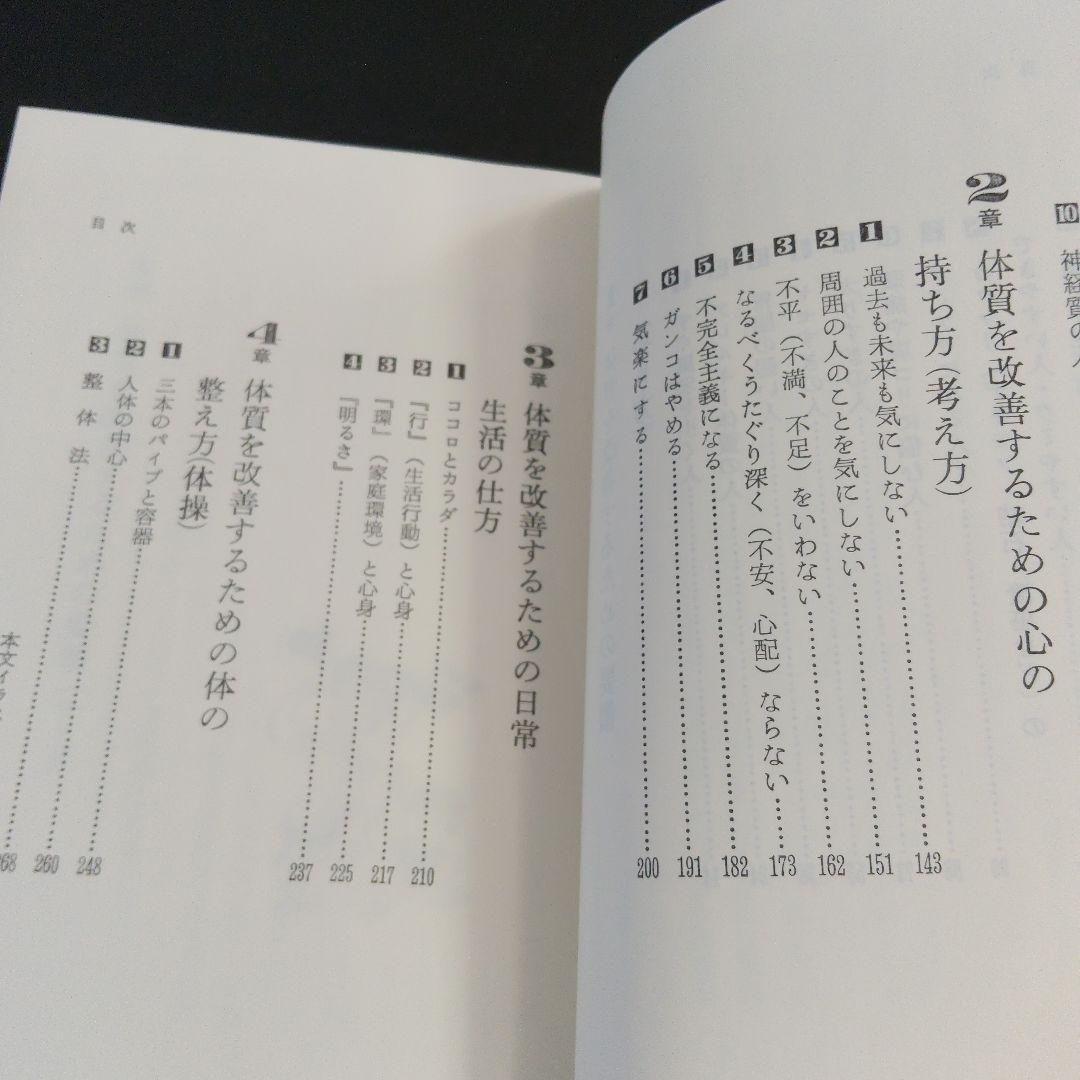 10 神経質の人
2章 体質を改善するための心の
持ち方(考え方)
1 過去も未来も気にしない……143
2 周囲の人のことを気にしない……151
3 不平(不満、不足)をいわない……162
4 なるべくうたぐり深く(不安、心配)ならない……173
5 不完全主義になる……182
6 ガンコはやめる……191
7 気楽にする……200
目次
3章 体質を改善するための日常
生活の仕方
1 ココロとカラダ……210
2 『行』(生活行動)と心身……217
3 『環』(家庭環境)と心身……225
4 『明るさ』……237
4章 体質を改善するための体の
整え方(体操)
1 三本のパイプと容器……248
2 人体の中心……260
3 整体法……268
本文イラ